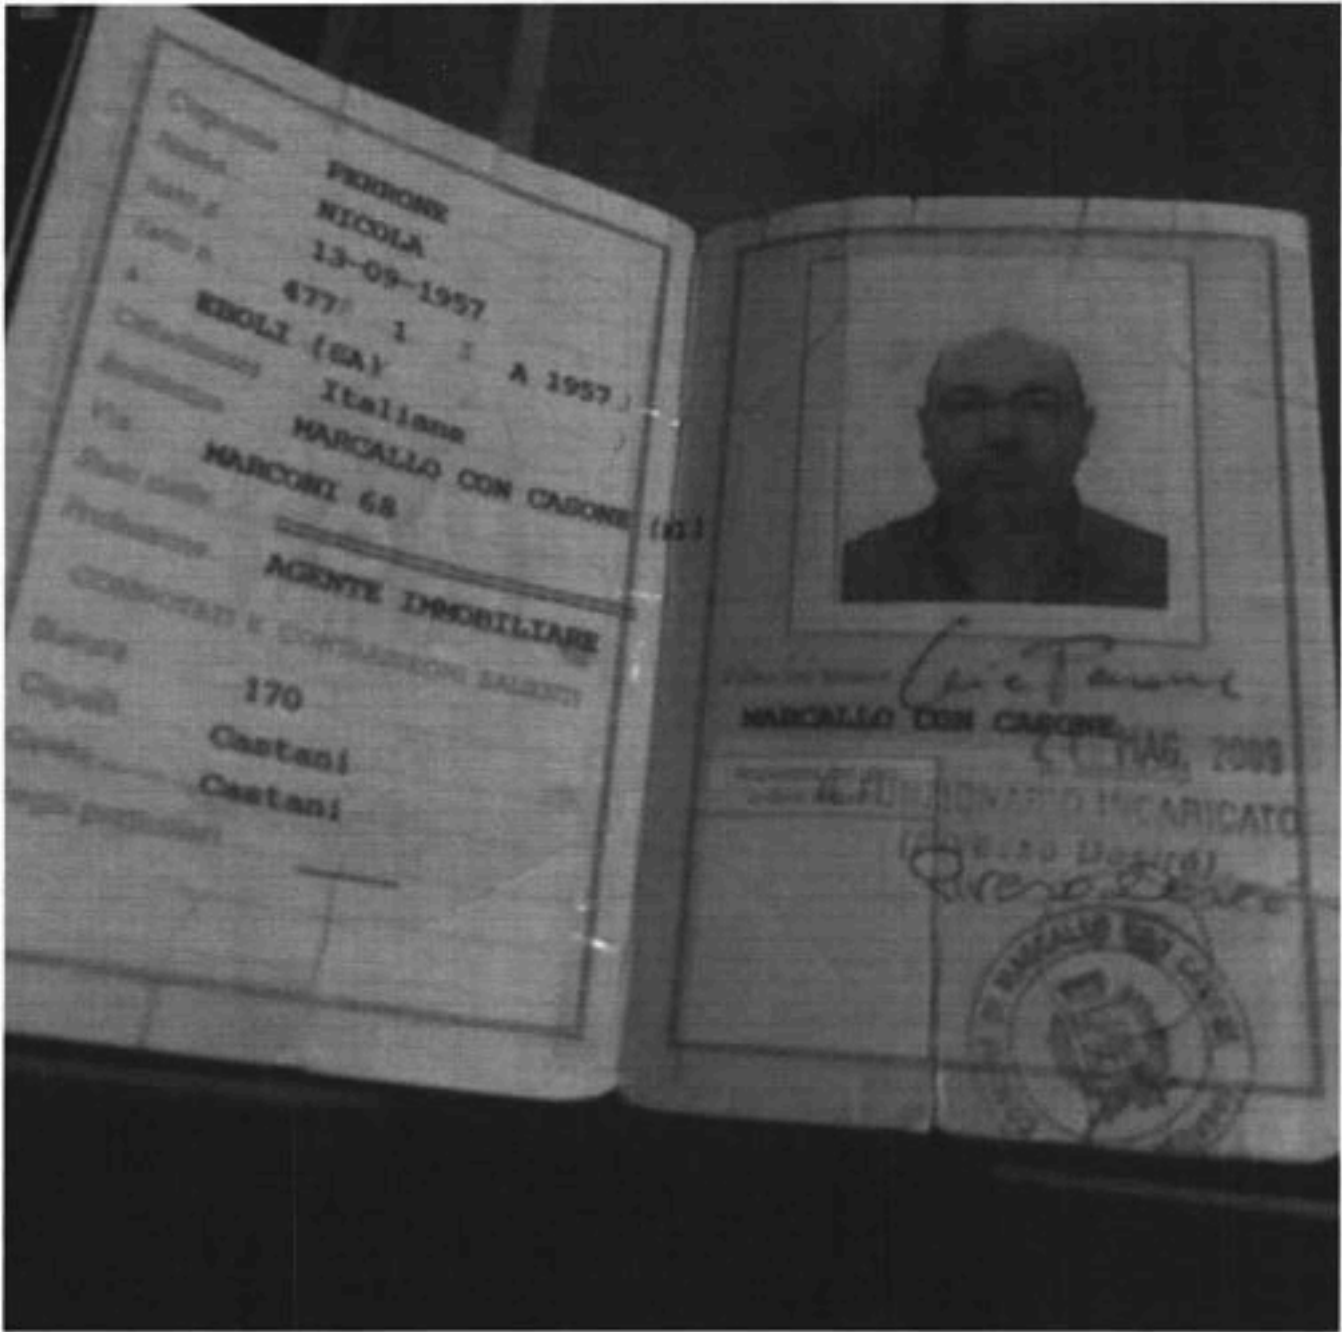 Cognome
PERRONE
Nome
NICOLA
nato il
13-09-1957
(atto n.
477 1 A 1957 )
a
EBOLI (SA)
Cittadinanza
Italiana
Residenza
MARCALLO CON CASONE (MI)
Via
MARCONI 68
Stato civile
Professione
AGENTE IMMOBILIARE
CONNOTATI E CONTRASSEGNI SALIENTI
Statura
170
Capelli
Castani
Castani
MARCALLO CON CASONE
MAG. 2009
IL FUNZIONARIO INCARICATO